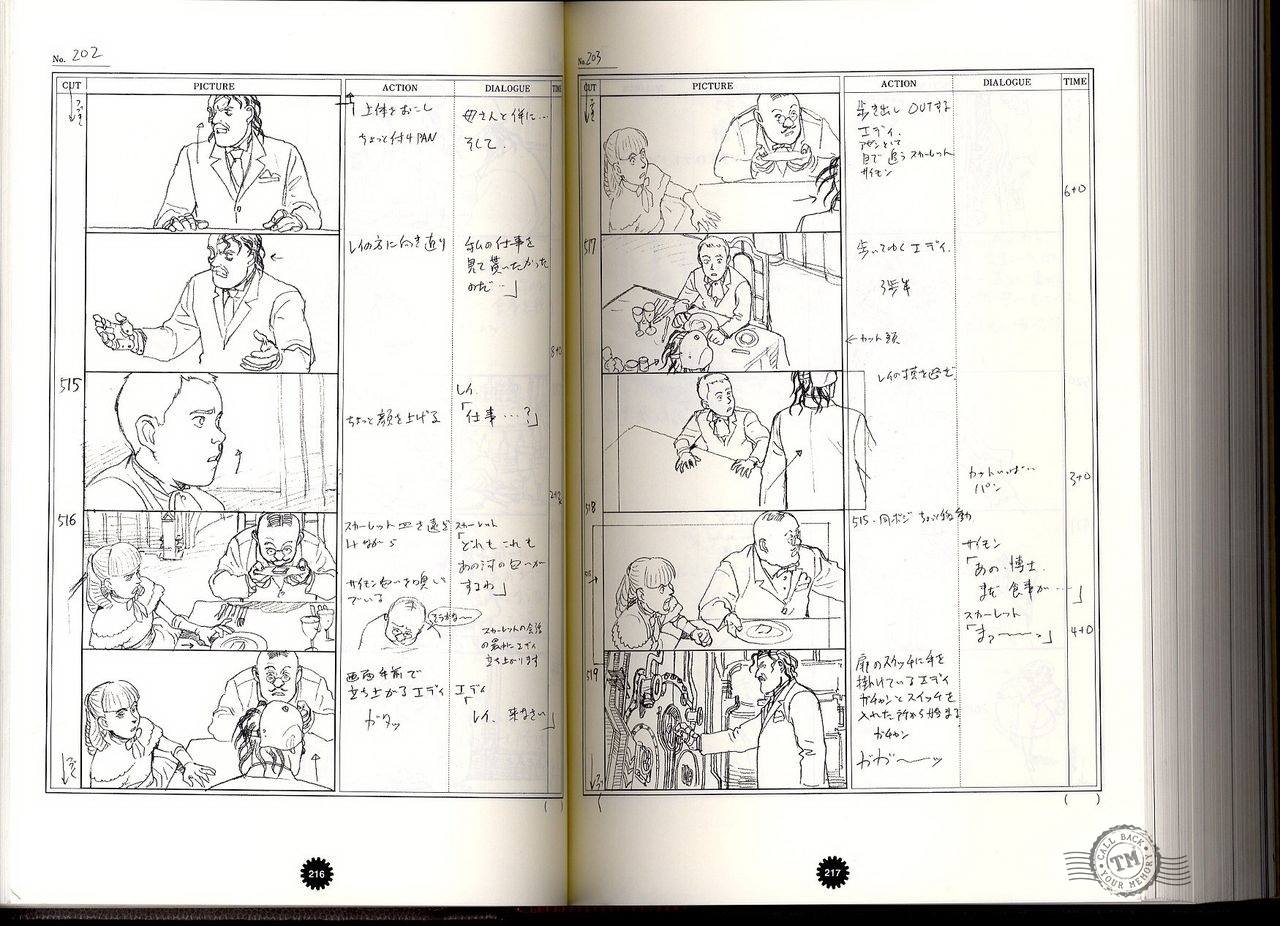 No. 202
CUT
PICTURE
ACTION
DIALOGUE
TIME
つづき
上体をおこし
ちょっと付けPAN
母さんと供に…
そして.
レイの方に向き直り
私の仕事を
見て貰いたかった
のだ…」
8+0
515
ちょっと顔を上げる
レイ.
「仕事…?」
516
スカーレット皿を遠ざ
けながら
サイモン匂いを嗅い
でいる
スカーレット
「どれもこれも
あの河の匂いが
するわ」
スカーレットの会話
の最中にエディ
立ち上がります
画面手前で
立ち上がるエディ
ガタッ
エディ
「レイ. 来なさい」
つづく
216
No. 203
CUT
PICTURE
ACTION
DIALOGUE
TIME
つづき
歩き出しOUTする
エディ.
目で追うスカーレット
サイモン
6+0
517
歩いてゆくエディ.
3歩半
カット頭
レイの横を過ぎ.
カットいっぱい
パン
3+0
518
515・同ポジ ちょい移動
サイモン
「あの・博士.
まだ食事が…」
スカーレット
「まァ〜〜ッ」
4+0
519
扉のスイッチに手を
掛けているエディ
ガチャンとスイッチを
入れた所から始まる
ガチャン
ガガ〜〜ッ
217
CALL BACK
TM
YOUR MEMORY